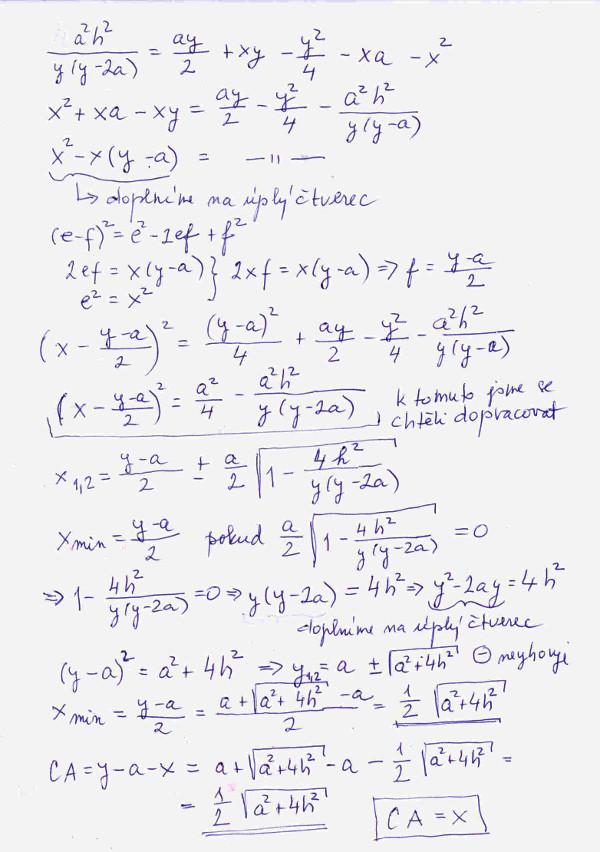 a²h²/y(y-2a) = ay/2 + xy - y²/4 - xa - x²
x² + xa - xy = ay/2 - y²/4 - a²h²/y(y-a)
x² - x(y-a) = —〃—
↳ doplníme na úplný čtverec
(e-f)² = e² - 2ef + f²
2ef = x(y-a) } 2xf = x(y-a) ⇒ f = y-a/2
e² = x²
(x - y-a/2)² = (y-a)²/4 + ay/2 - y²/4 - a²h²/y(y-a)
(x - y-a/2)² = a²/4 - a²h²/y(y-2a) k tomuto jsme se
chtěli dopracovat
x₁,₂ = y-a/2 ± a/2 √(1 - 4h²/y(y-2a))
xmin = y-a/2 pokud a/2 √(1 - 4h²/y(y-2a)) = 0
⇒ 1 - 4h²/y(y-2a) = 0 ⇒ y(y-2a) = 4h² ⇒ y² - 2ay = 4h²
doplníme na úplný čtverec
(y-a)² = a² + 4h² ⇒ y₁,₂ = a ± √(a²+4h²) ⊖ nevyhovuje
xmin = y-a/2 = a + √(a²+4h²) - a/2 = 1/2 √(a²+4h²)
CA = y-a-x = a + √(a²+4h²) - a - 1/2 √(a²+4h²) =
= 1/2 √(a²+4h²) CA = x